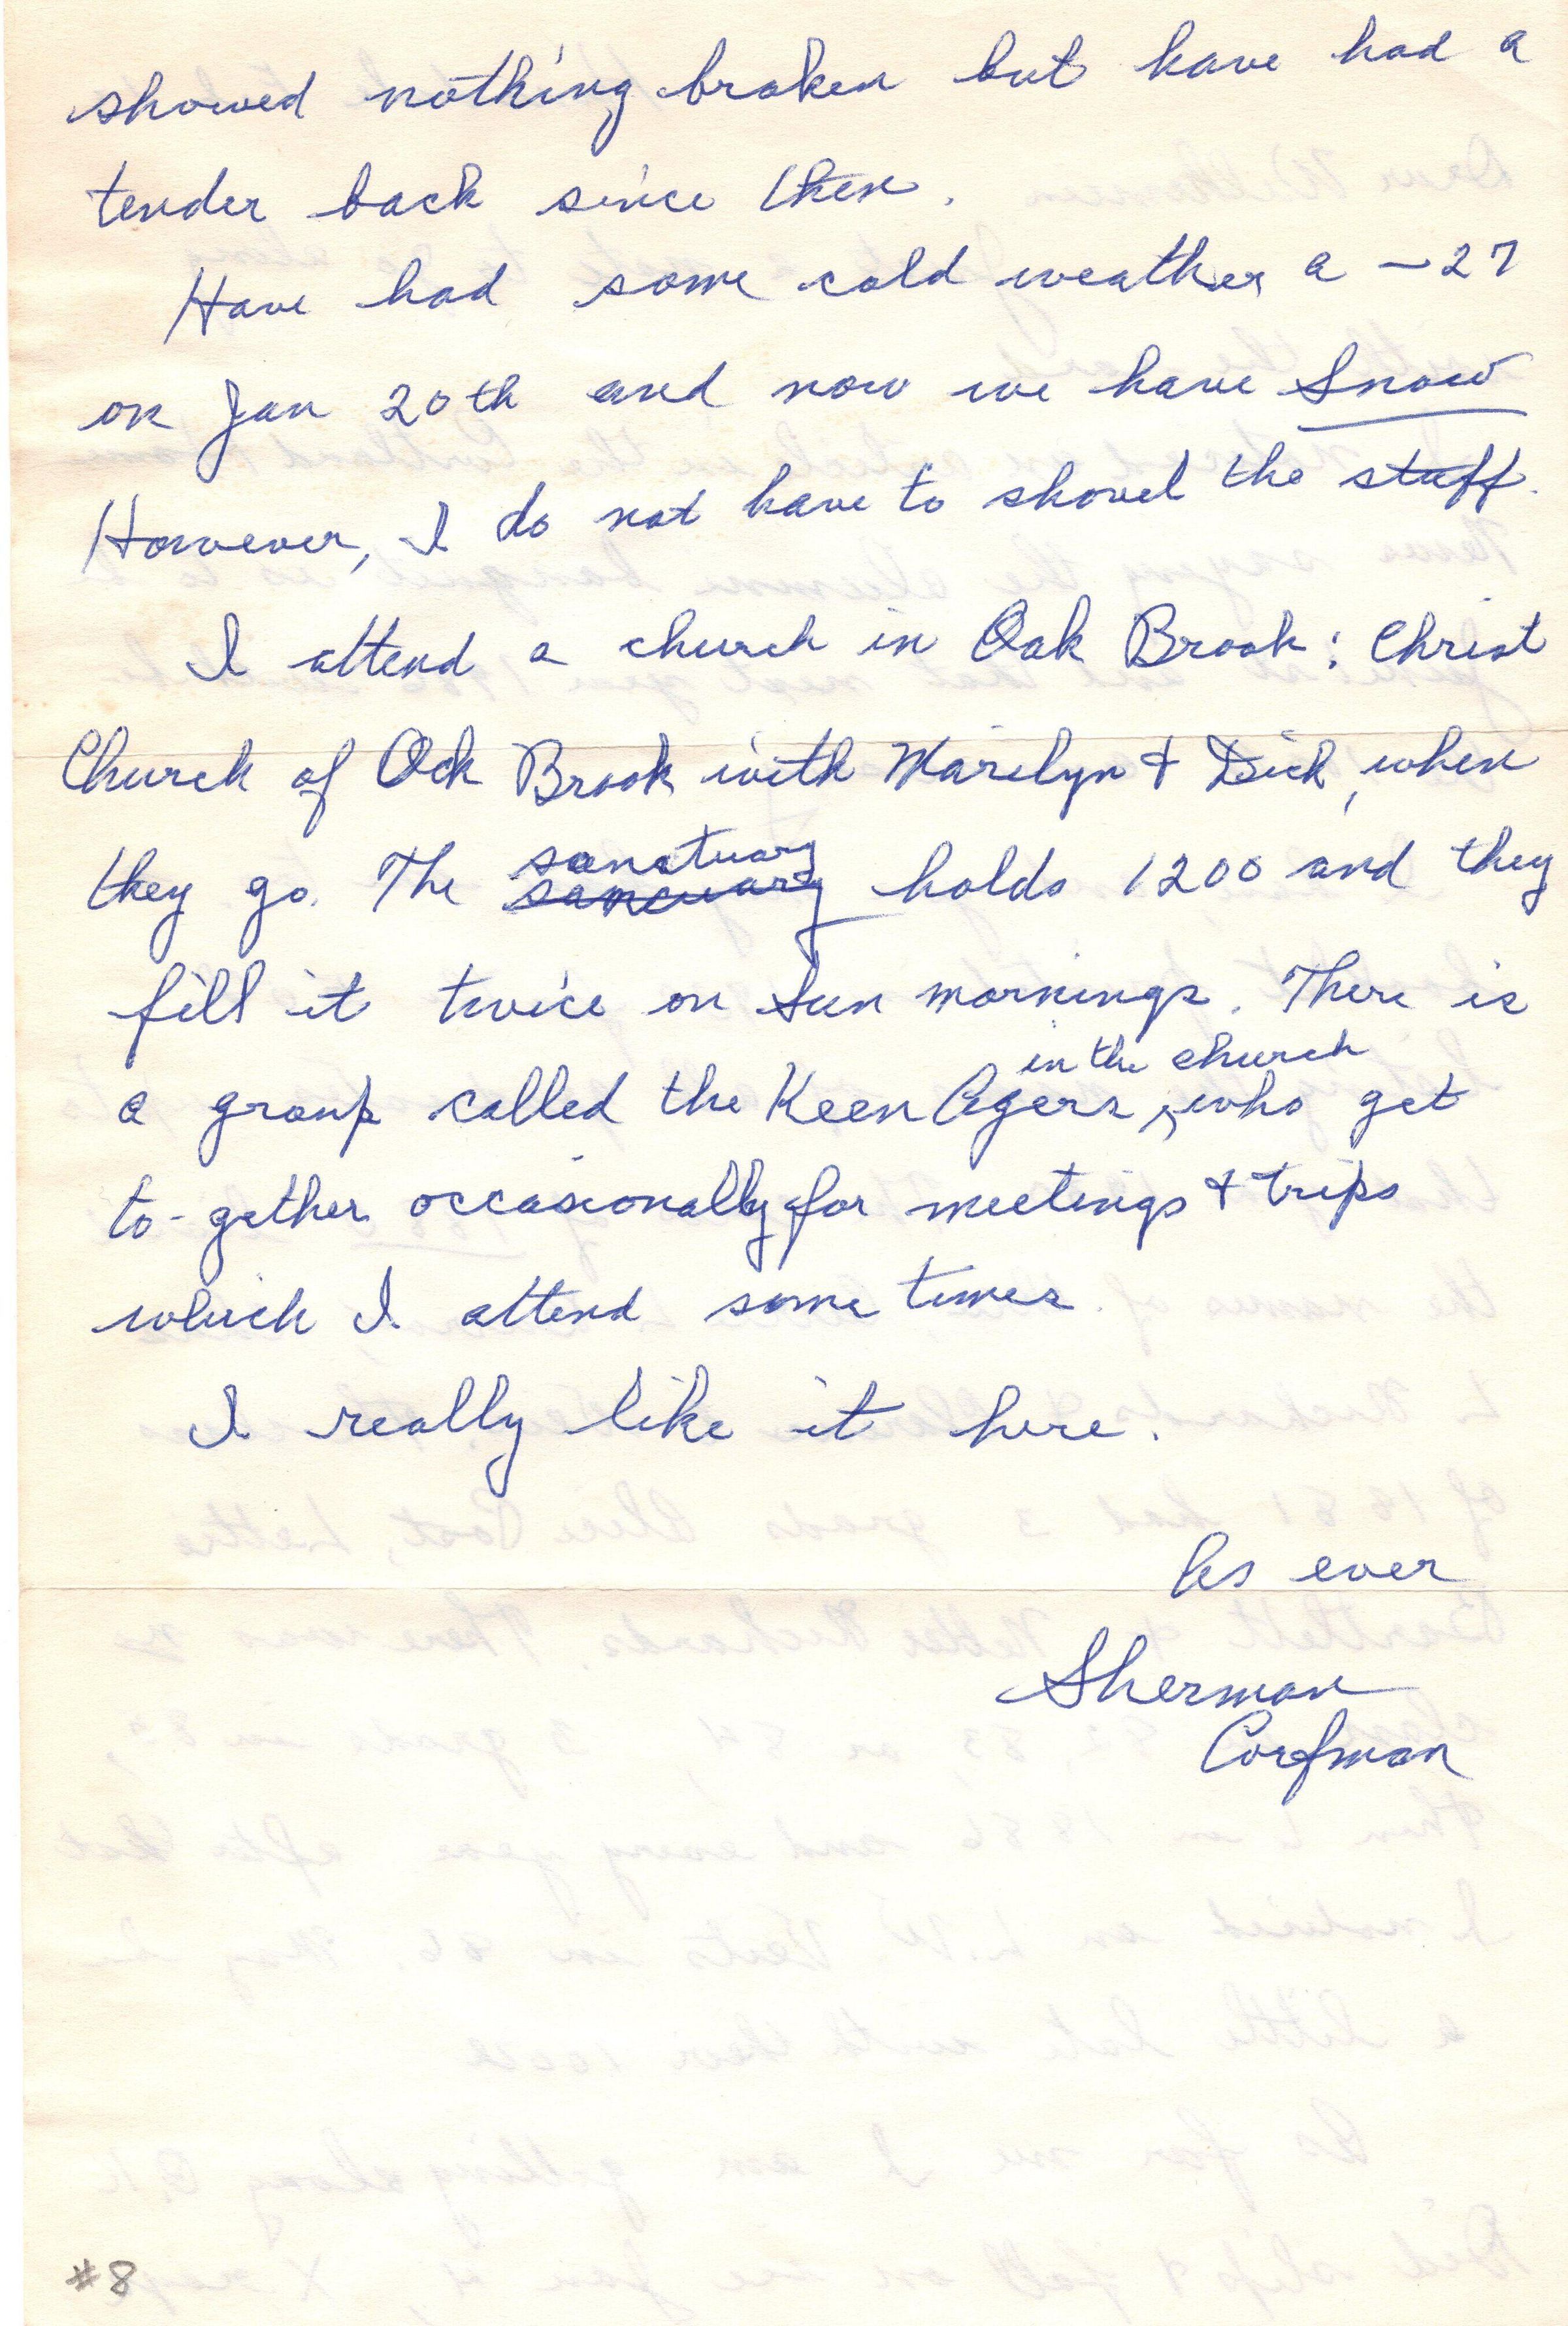 showed nothing broken but have had a
tender back since then.
Have had some cold weather a -27
on Jan 20th and now we have Snow
However, I do not have to shovel the stuff.
I attend a church in Oak Brook: Christ
Church of Oak Brook with Marilyn & Dick, when
they go. The sancuary sanctuary holds 1200 and they
fill it twice on Sun mornings. There is
a group called the Keen Agers in the church, who get
to-gether occasionally for meetings & trips
which I attend some times.
I really like it here.
As ever
Sherman
Corfman
#8